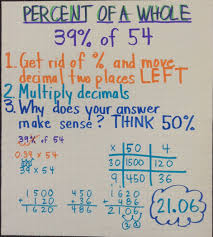 PERCENT OF A WHOLE
39% of 54
1. Get rid of % and move
decimal two places LEFT
2. Multiply decimals
3. Why does your answer
make sense? THINK 50%
39% of 54
0.39 x 54
39 x 54
x 50 4
30 1500 120
9 450 36
1500
+ 120
1620
450
+ 36
486
1620
+ 486
2106
21.06